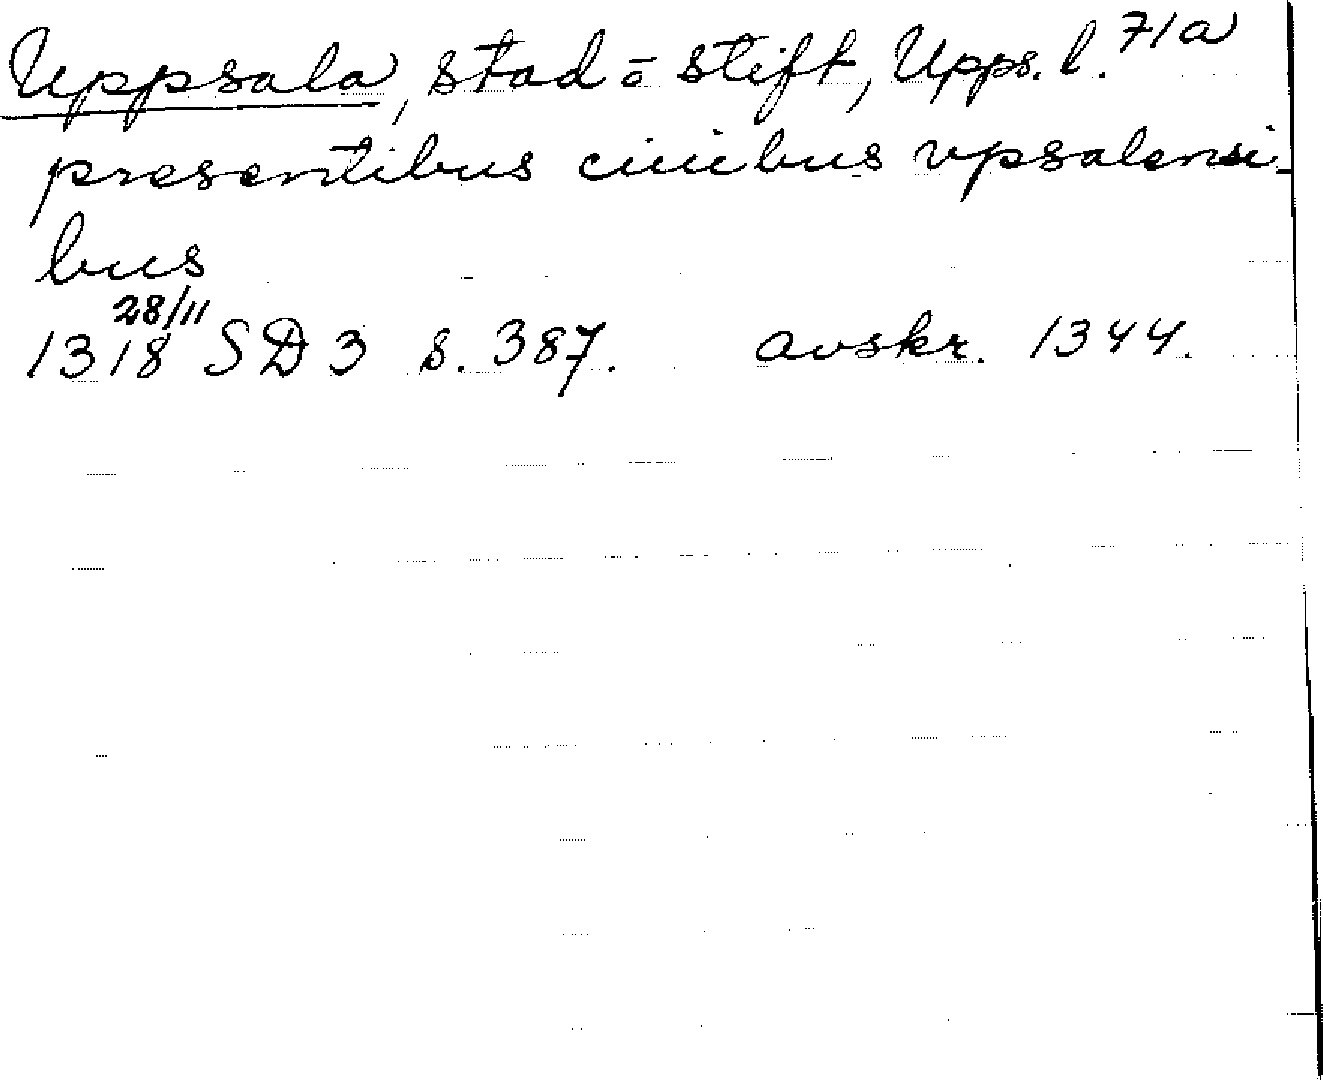 Uppsala, stad o stift, Upps. l. 71a
presentibus ciuibus vpsalensi-
bus
1318 28/11 SD 3 s. 387. avskr. 1344.